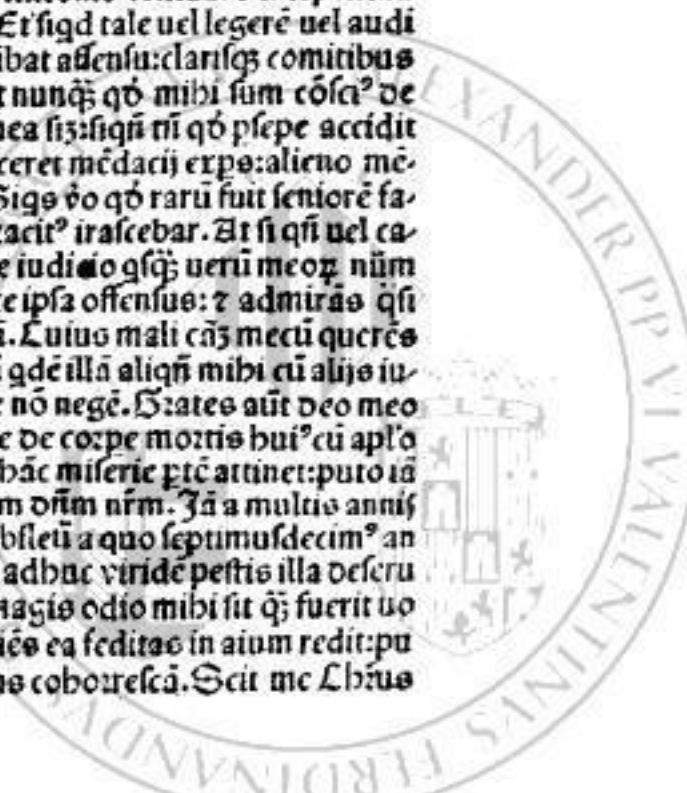 Et siqd tale uel legerē uel audi
ibat assensu:clarisqʒ comitibus
t nunqʒ qđ mihi sum cōsciꝰ de
nea siʒ:siqñ tñ qđ psepe accidit
ceret mēdacij expo:alieno mē-
Siqs ṽo qđ rarū fuit seniorē fa-
racitꝰ irascebar. At si qñ uel ca-
e iudicio qsqʒ uerū meoꝝ nūm
te ipsa offensus: ⁊ admirās q̃si
ī. Cuius mali cāʒ mecū querēs
ī qdē illā aliqñ mihi cū alijs iu-
c nō negē. Grates aūt deo meo
e de corpe mortis huiꝰ cū aplo
hāc miserie ptē attinet:puto iā
m dñm nrm. Jā a multis annis
bsletū a quo septimusdecimꝰ an
adhuc viridē pestis illa deseru
nagis odio mihi sit qʒ fuerit uo
iēs ea feditas in aium redit:pu
us cohorrescā. Scit me Christus
ALEXANDER PP VI VALENTINVS FERDINANDVS